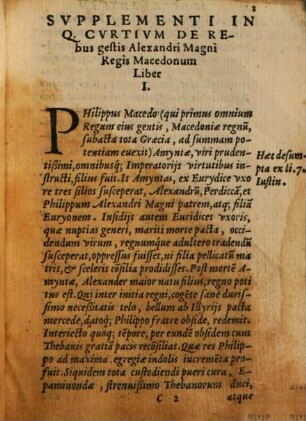 3
SVPPLEMENTI IN
Q. CVRTIVM DE RE-
bus gestis Alexandri Magni
Regis Macedonum
Liber
I.
PHilippus Macedo (qui primus omnium
Regum eius gentis, Macedoniæ regnũ,
subacta tota Græcia, ad summam po-
tentiam euexit) Amyntæ, viri pruden-
tissimi, omnibusq; Imperatorijs virtutibus in-
structi, filius fuit. Is Amyntas, ex Eurydice vxo
re tres filios susceperat, Alexandrũ, Perdiccã, et
Philippum Alexandri Magni patrem, atq; filiũ
Euryonem. Insidijs autem Euridices vxoris,
quæ nuptias generi, mariti morte pacta, oc-
cidendum virum, regnumque adultero tradendũ
susceperat, oppressus fuisset, ni filia pellicatũ ma
tris, & sceleris cõsilia prodidisset. Post mortẽ A-
myntæ, Alexander maior natu filius, regno poti
tus est. Qui inter initia regni, cogẽte sanè durissi
simo necessitatis telo, bellum ab Illyrijs pacta
mercede, datoq; Philippo fratre obside, redemit.
Interiecto quoq; tẽpore, per eundẽ obsidem cum
Thebanis gratiã pacis recõsiliat. Quæ res Philip-
po ad maxima egregiæ indolis incremẽta pro-
fuit. Siquidem tota custodiendi pueri cura, E-
paminondæ, strenuissimo Thebanorum duci,
C 2 atque
Hæc desum-
pta ex li. 7.
Iustin.